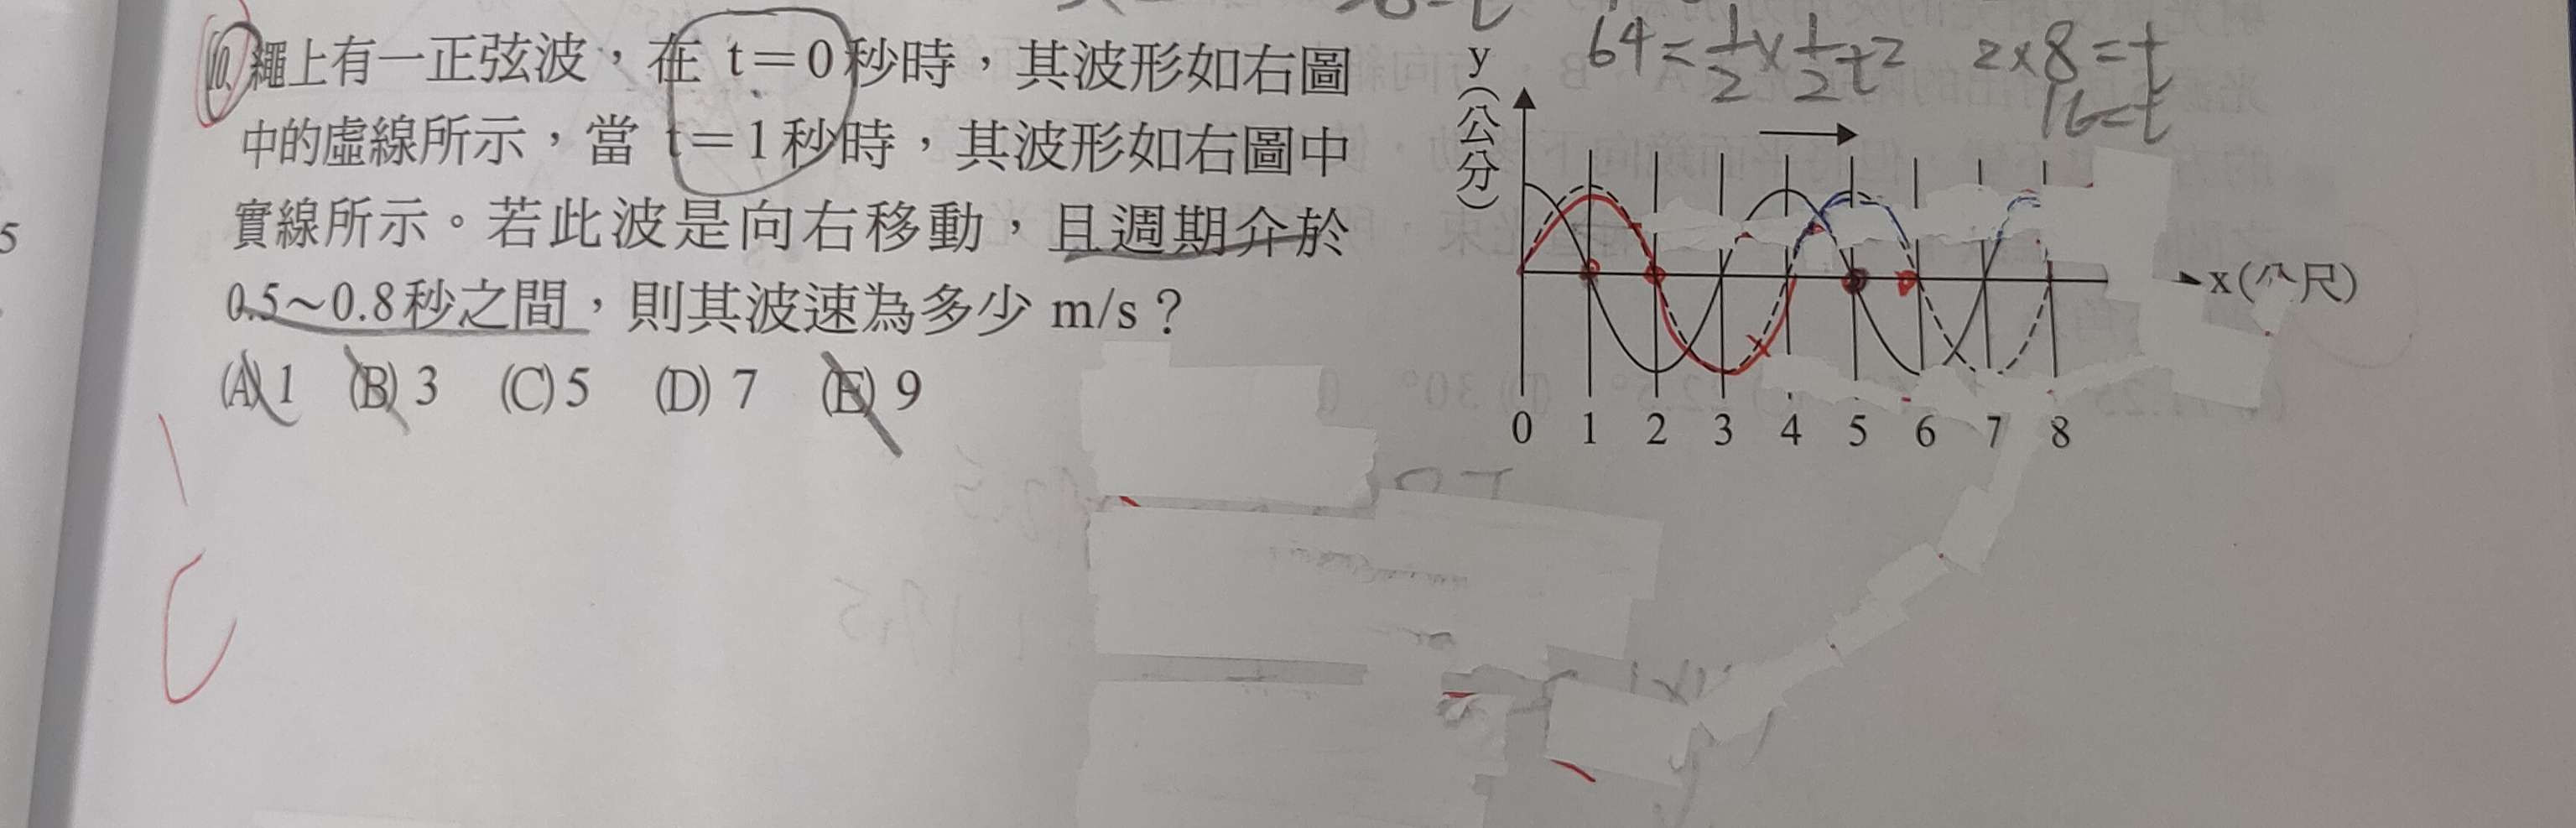 64=1/2×1/2t² 2×8=t
16=t
10. 繩上有一正弦波，在 t＝0秒時，其波形如右圖
中的虛線所示，當 t＝1秒時，其波形如右圖中
實線所示。若此波是向右移動，且週期介於
0.5～0.8秒之間，則其波速為多少 m/s？
(A) 1 (B) 3 (C) 5 (D) 7 (E) 9
y(公分)
x(公尺)
0 1 2 3 4 5 6 7 8